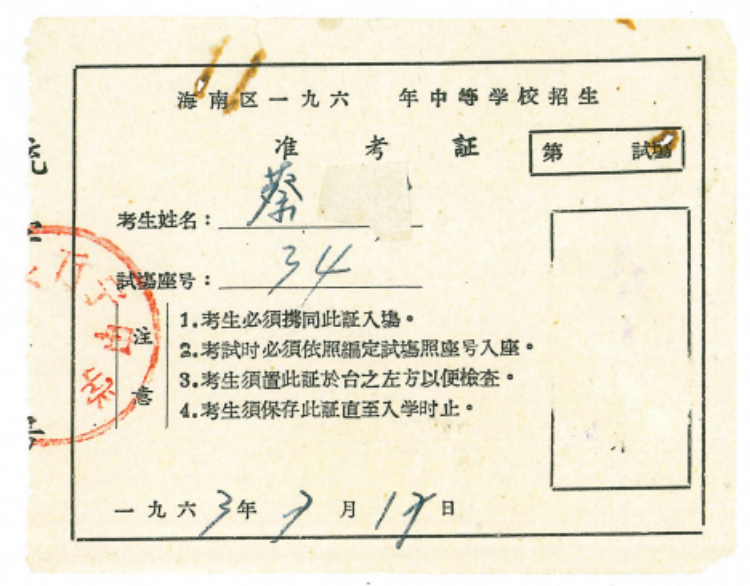 海南区一九六 年中等学校招生
准考証
第 試場
考生姓名：蔡
試場座号：34
注意
1.考生必須携同此証入場。
2.考試时必須依照編定試場照座号入座。
3.考生須置此証於台之左方以便檢查。
4.考生須保存此証直至入学时止。
一九六3年7月17日